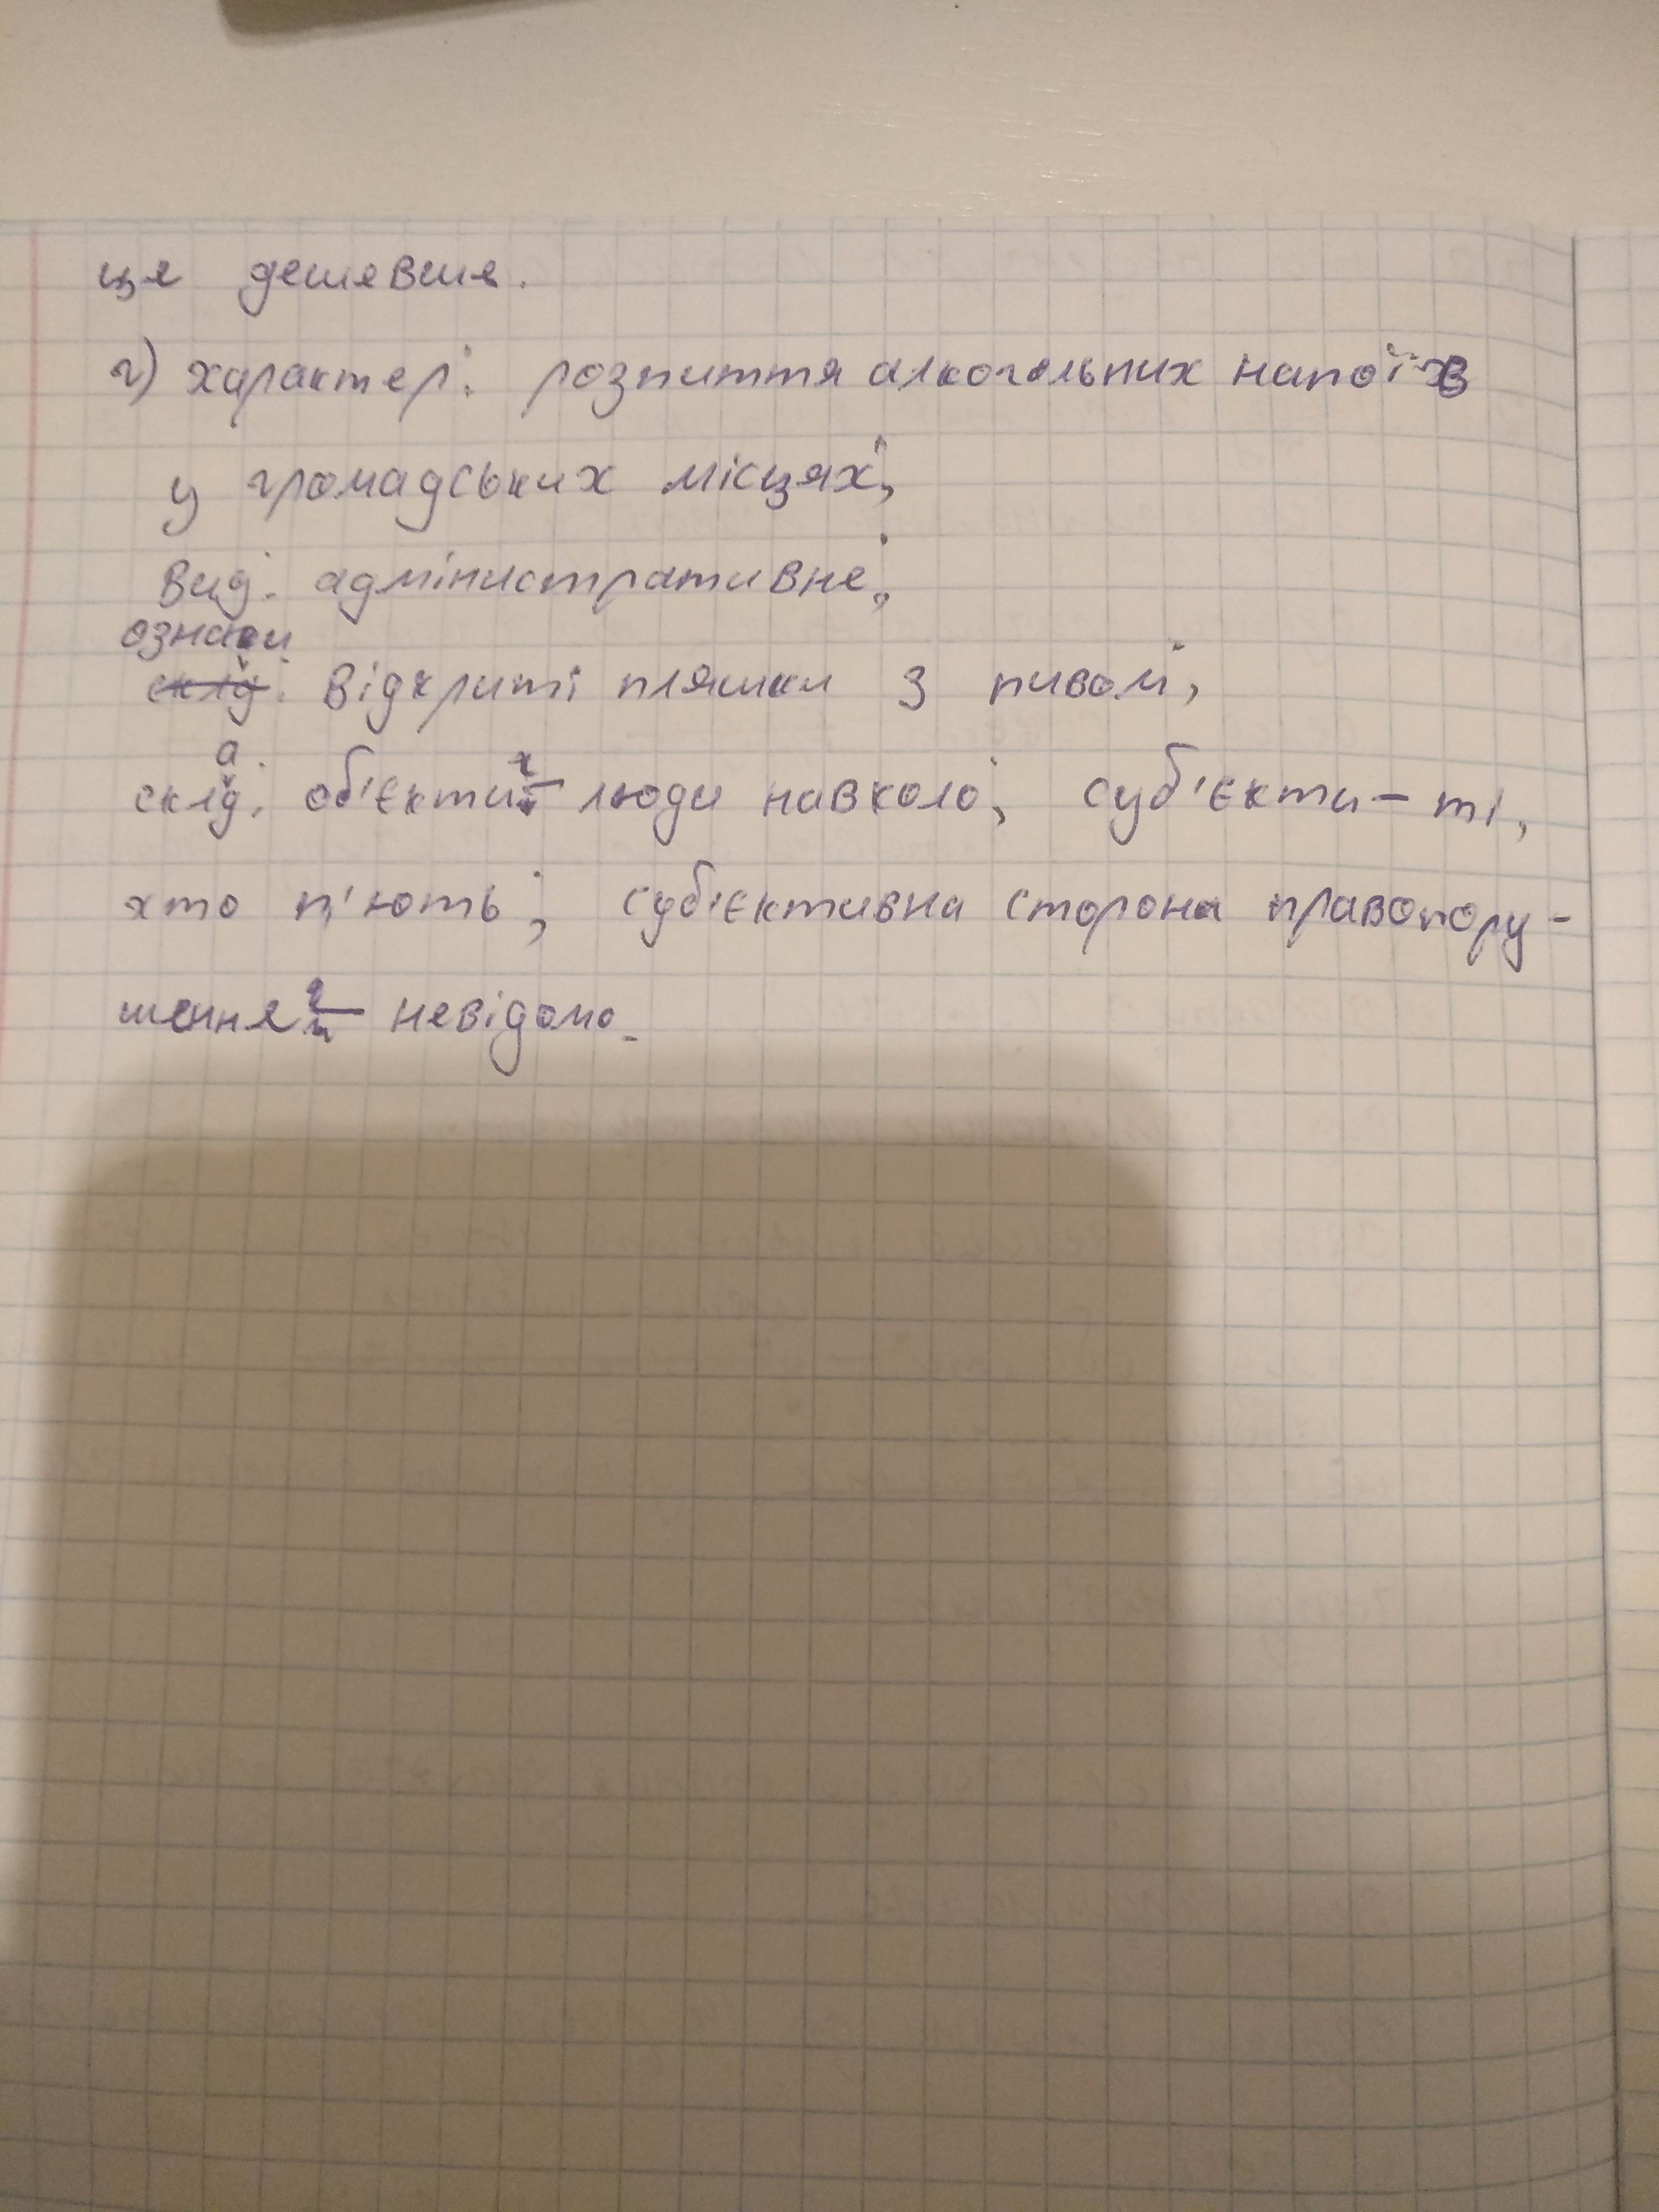 це дешевше.
г) характер: розпиття алкогольних напоїв
у громадських місцях;
вид: адміністративне;
ознаки
склд: відкриті пляшки з пивом;
склад: об'єкти – люди навколо; суб'єкти – ті,
хто п'ють; суб'єктивна сторона правопору-
шення – невідомо.